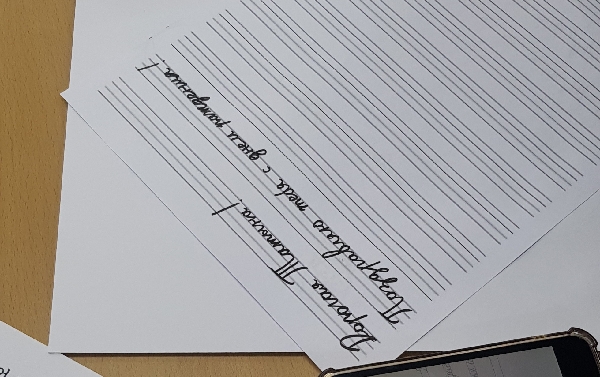 Дорогая Татьяна!
Поздравляю тебя с днем рождения!